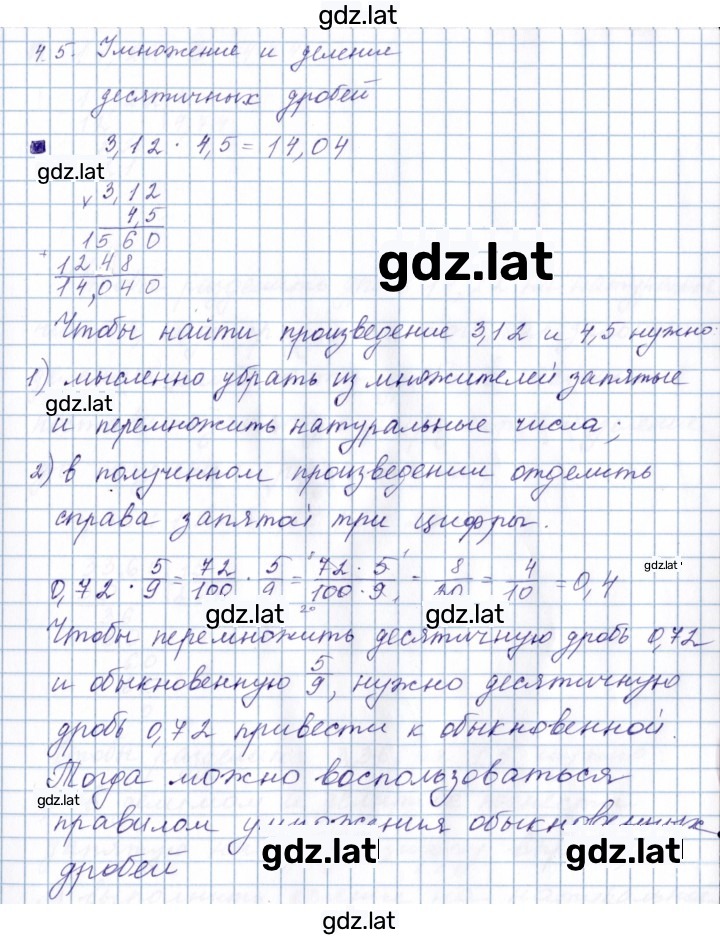 gdz.lat
4.5. Умножение и деление
десятичных дробей
3,12 · 4,5 = 14,04
gdz.lat
× 3,12
4,5
1560
gdz.lat
+ 1248
14,040
Чтобы найти произведение 3,12 и 4,5 нужно:
1) мысленно убрать из множителей запятые
gdz.lat
и перемножить натуральные числа;
2) в полученном произведении отделить
справа запятой три цифры.
0,72 · 5/9 = 72/100 · 5/9 = 72 · 5/100 · 9 = 8/20 = 4/10 = 0,4
gdz.lat
gdz.lat gdz.lat
Чтобы перемножить десятичную дробь 0,72
и обыкновенную 5/9, нужно десятичную
дробь 0,72 привести к обыкновенной.
Тогда можно воспользоваться
gdz.lat
правилом умножения обыкновенных
gdz.lat gdz.lat
дробей
gdz.lat